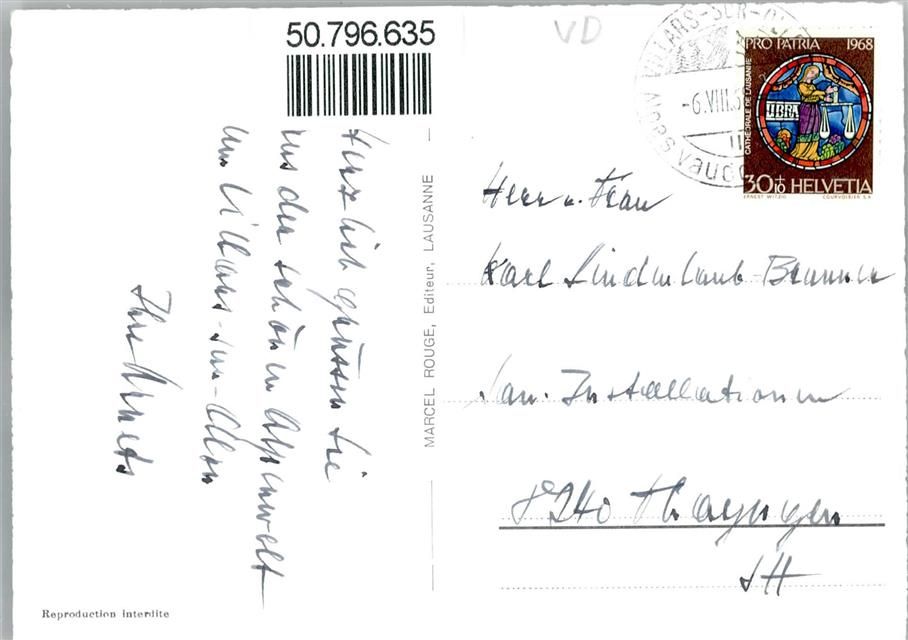 50.796.635
VD
VILLARS-SUR-OLLON
-6.VIII.
PRO PATRIA 1968
CATHÉDRALE DE LAUSANNE
LIBRA
30+10 HELVETIA
ERNEST WITZIG COURVOISIER S.A.
Herzlich grüssen Sie
aus der schönen Alpenwelt
um Villars-sur-Ollon
Ihre
MARCEL ROUGE, Editeur, LAUSANNE
Herr u. Frau
Karl Lindenlaub-Brunner
San. Installationen
8240 Thayngen
SH
Reproduction interdite